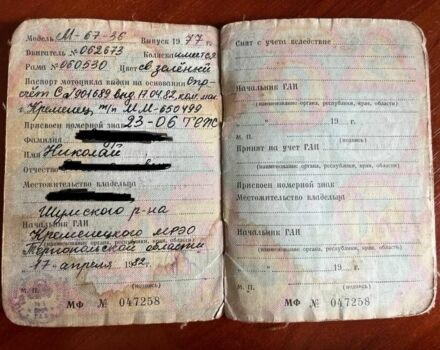 Модель М-67-36 Выпуск 1977 г.
Двигатель № 062673 Коляска имеется
Рама № 060530 Цвет св. зелёный
Паспорт мотоцикла выдан на основании спр-
счёт выд. 17.04.82, ком. маг.
г. Кременец, т/п ММ-650499
Присвоен номерной знак 23-06 ТЕЖ
Фамилия
Имя Николай
Отчество
Местожительство владельца
Шумского р-на
Начальник ГАИ
Кременецкого МРЭО
(наименование органа, республики, края, области)
Тернопольской области
17 апреля 1982 г.
М. П. (подпись)
МФ № 047258
Снят с учета вследствие
Начальник ГАИ
(наименование органа, республики, края, области)
" " 19 г.
М. П. (подпись)
Принят на учет ГАИ
(наименование органа, республики, края, области)
Присвоен номерной знак
Местожительство владельца
Начальник ГАИ
(наименование органа, республики, края, области)
" " 19 г.
М. П. (подпись)
МФ № 047258